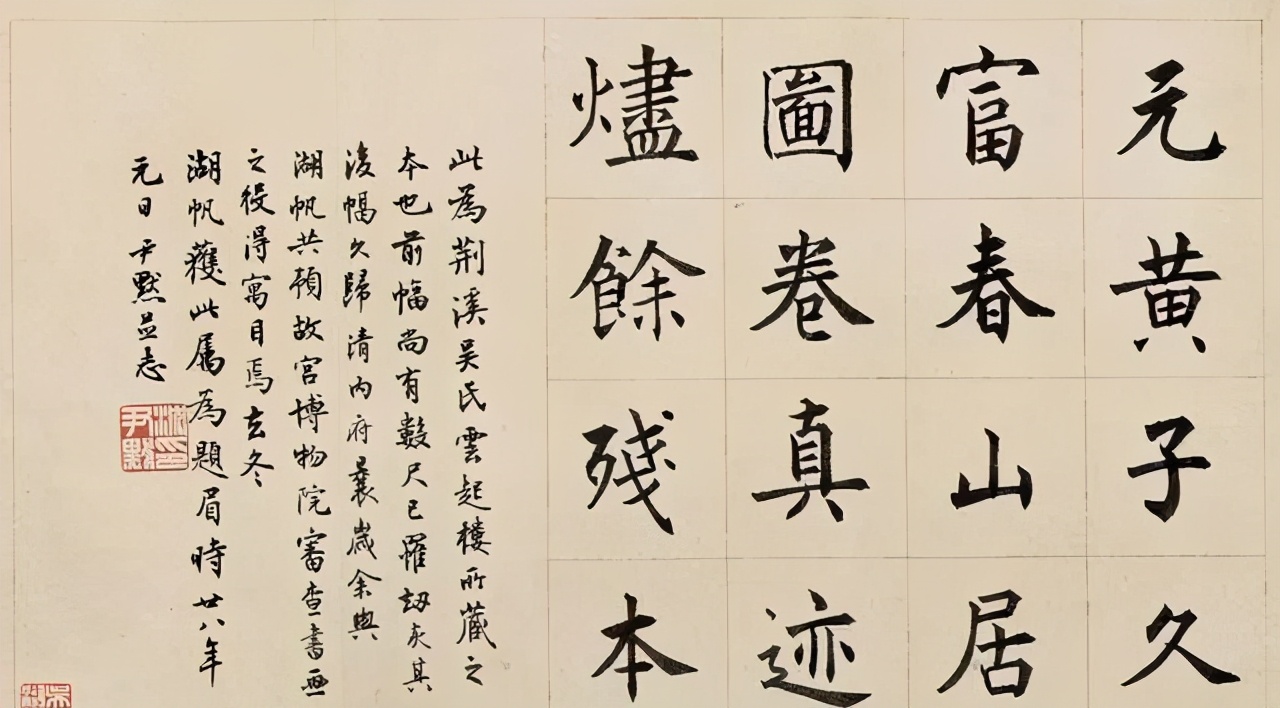 元黄子久
富春山居
圖卷真迹
燼餘殘本
此為荆溪吴氏雲起樓所藏之
本也前幅尚有數尺已罹劫灰其
後幅久歸清内府曩歲余與
湖帆共領故宫博物院審查書画
之役得寓目焉玄冬
湖帆獲此属為題眉時廿八年
元日尹默並志
沈尹默印